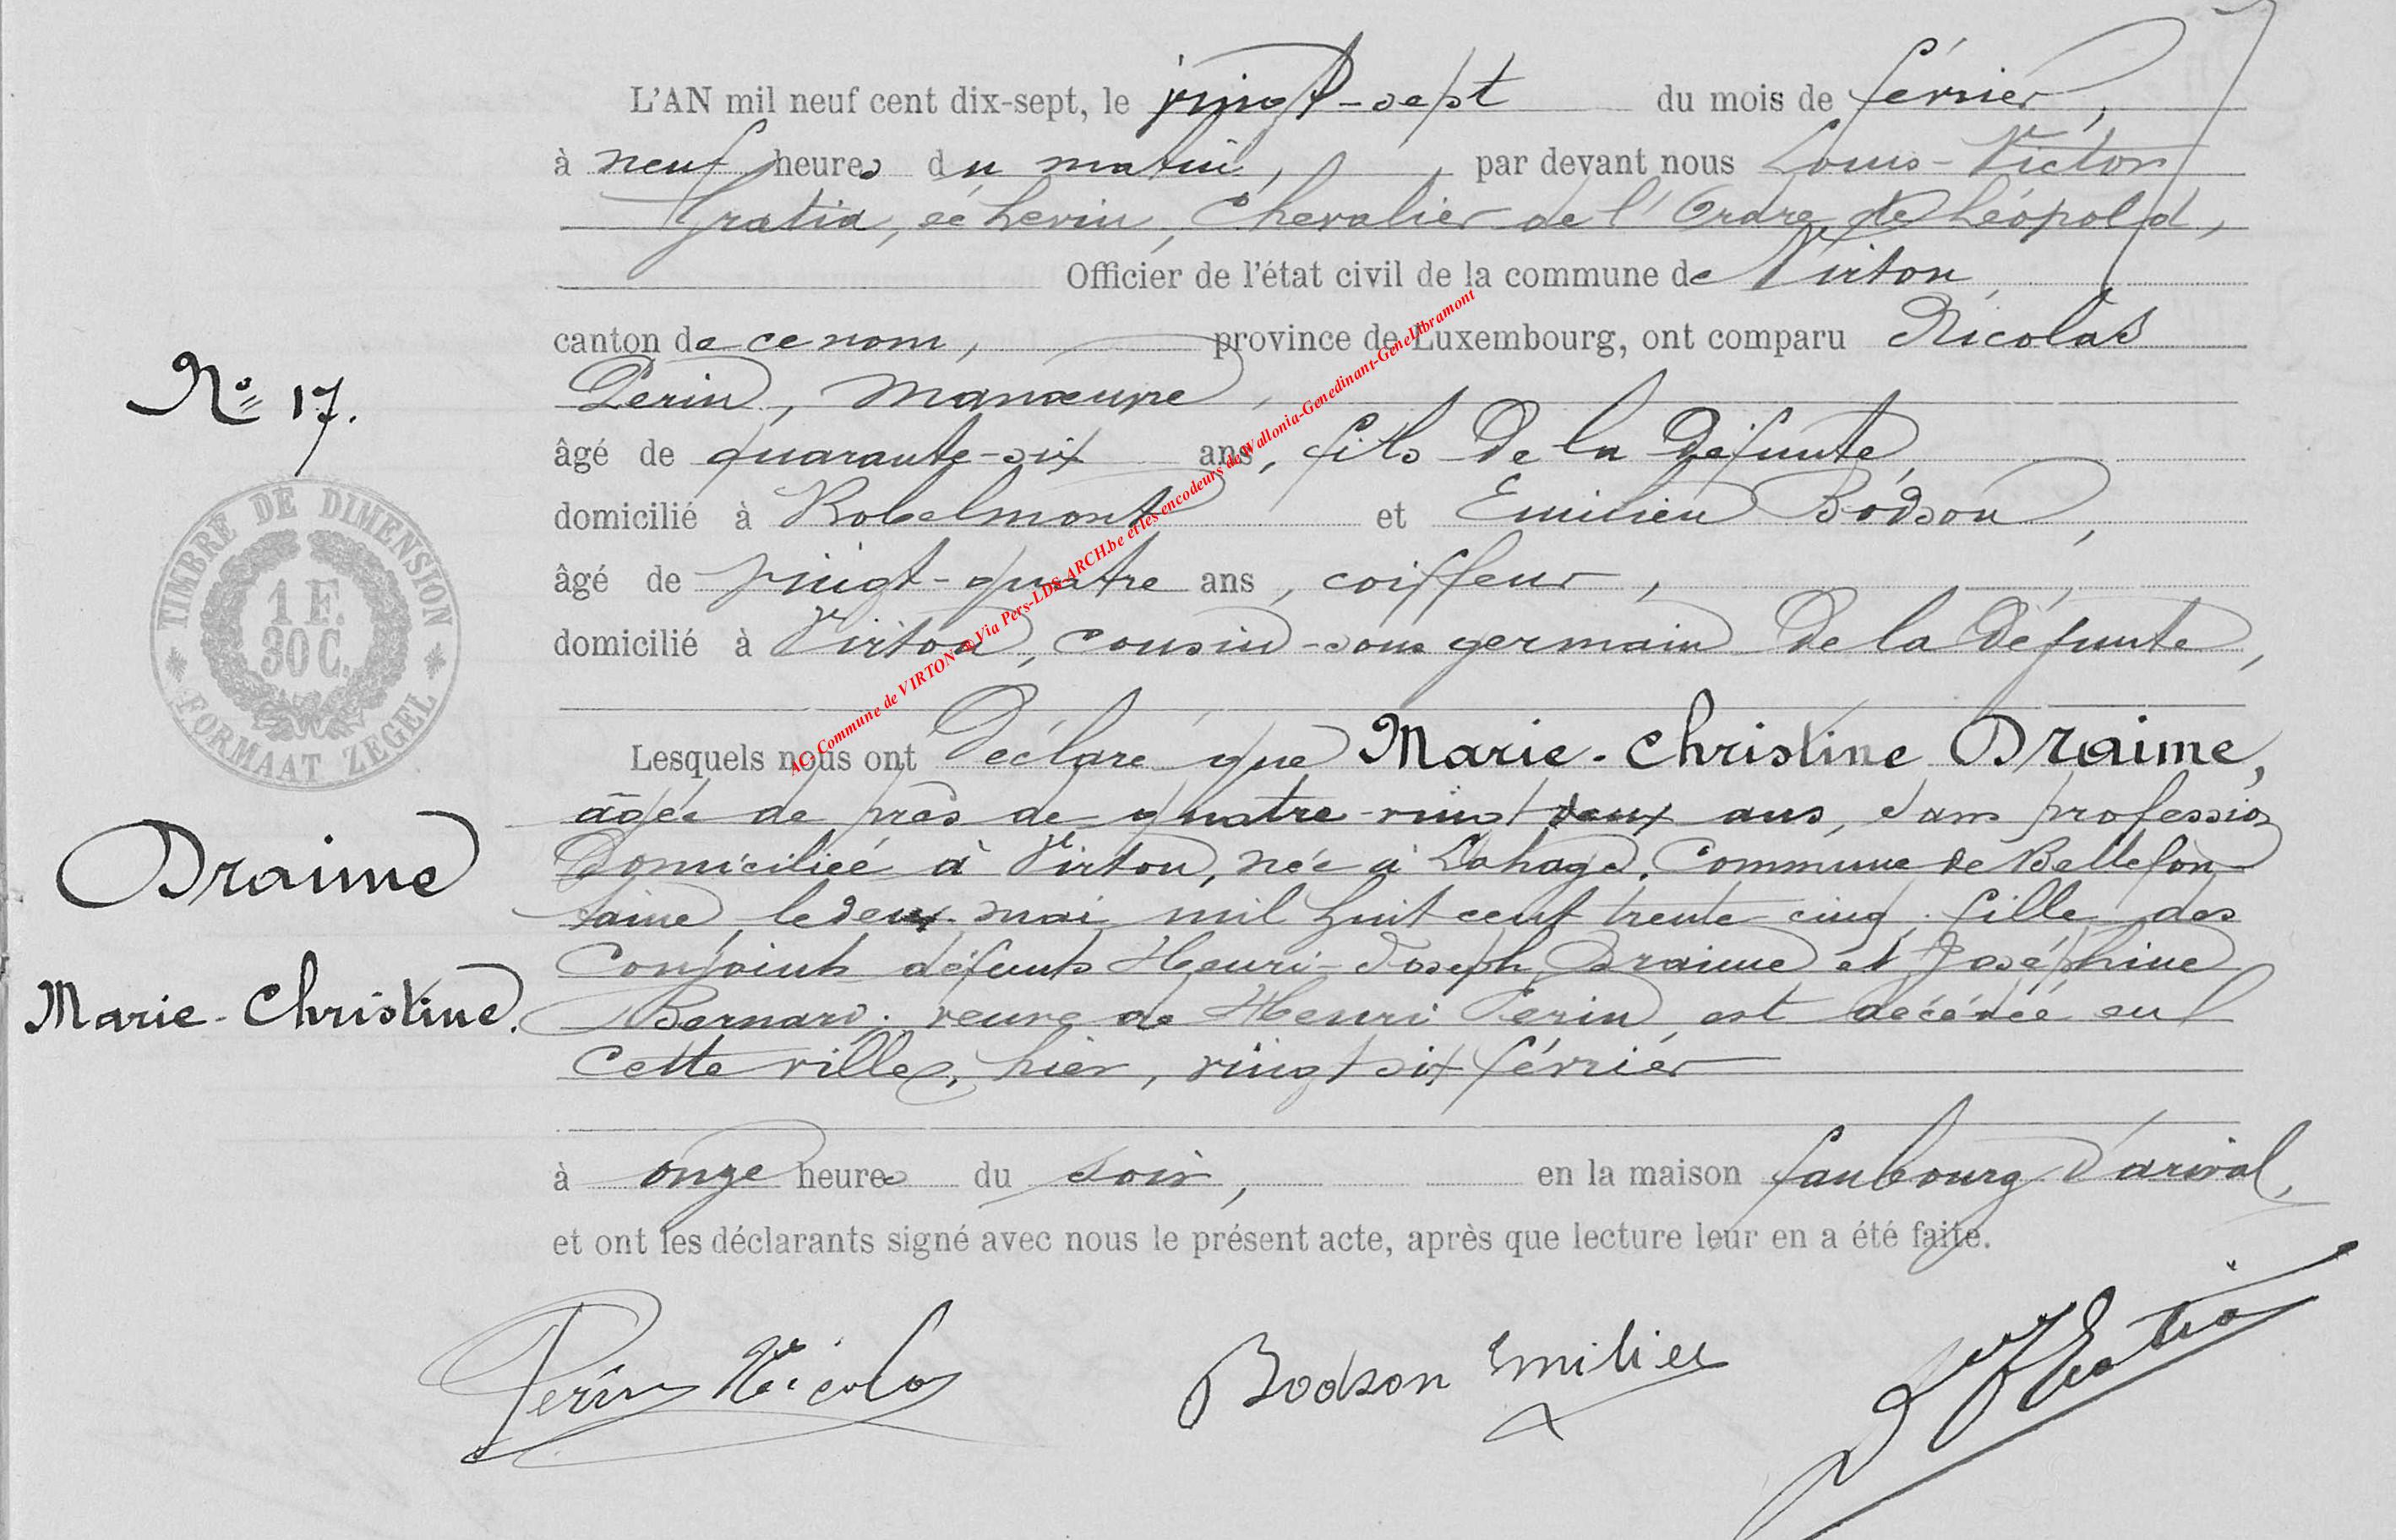 L'AN mil neuf cent dix-sept, le vingt-sept du mois de février,
à neuf heures du matin, par devant nous Louis-Victor
Gratia, échevin, Chevalier de l'Ordre de Léopold,
Officier de l'état civil de la commune de Virton,
canton de ce nom, province de Luxembourg, ont comparu Nicolas
Perin, manœuvre,
N° 17.
âgé de quarante-six ans, fils de la défunte,
domicilié à Robelmont et Emilien Bodson,
âgé de vingt-quatre ans, coiffeur,
domicilié à Virton, cousin-sous germain de la défunte,
TIMBRE DE DIMENSION
1 F.
30 C.
FORMAAT ZEGEL
AC: Commune de VIRTON © Via Pers-LDS-ARCH.be et les encodeurs de Wallonia-Genedinant-GeneLibramont
Lesquels nous ont déclaré que Marie-Christine Draime,
âgée de près de quatre-vingt deux ans, sans profession
domiciliée à Virton, née à Lahage, Commune de Bellefon-
taine, le deux mai mil huit cent trente cinq, fille des
Conjoints défunts Henri-Joseph Draime et Joséphine
Bernard, veuve de Henri Perin, est décédée en
Cette ville, hier, vingt six février
Draime
Marie-Christine.
à onze heures du soir, en la maison faubourg d'arival,
et ont les déclarants signé avec nous le présent acte, après que lecture leur en a été faite.
Perin Nicolas Bodson Emilien LVGratia